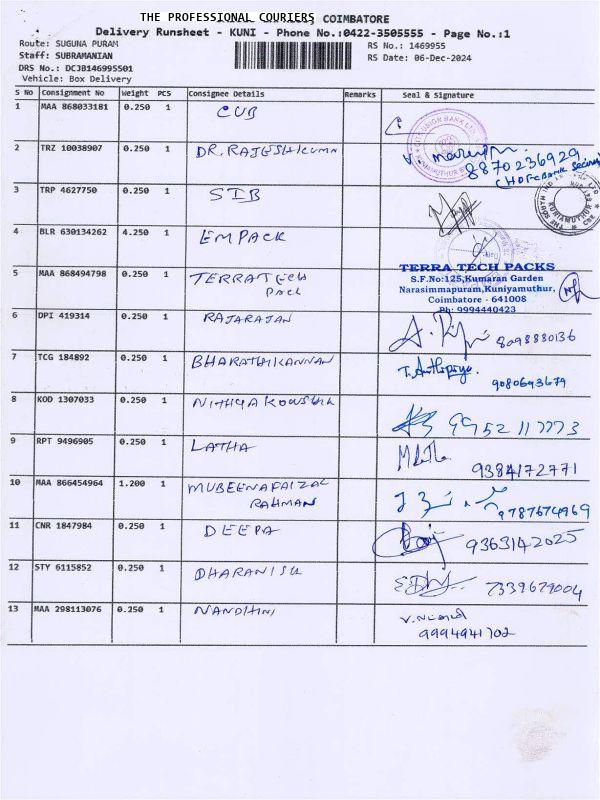 THE PROFESSIONAL COURIERS, COIMBATORE
Delivery Runsheet - KUNI - Phone No.:0422-3505555 - Page No.:1
Route: SUGUNA PURAM RS No.: 1469955
Staff: SUBRAMANIAN RS Date: 06-Dec-2024
DRS No.: DCJB146995501
Vehicle: Box Delivery
S No Consignment No Weight PCS Consignee Details Remarks Seal & Signature
1 MAA 868033181 0.250 1 CUB
2 TRZ 10038907 0.250 1 DR. RAJESHKUMAR 8870236929
3 TRP 4627750 0.250 1 SIB
4 BLR 630134262 4.250 1 EMPACK
5 MAA 868494798 0.250 1 TERRATECH
PACK
TERRA TECH PACKS
S.F.No:125,Kumaran Garden
Narasimmapuram,Kuniyamuthur,
Coimbatore - 641008
Ph: 9994440423
6 DPI 419314 0.250 1 RAJARAJAN 8098880136
7 TCG 184892 0.250 1 BHARATHIKANNAN
9080693679
8 KOD 1307033 0.250 1 NITHYA KOWSIKA 9952117773
9 RPT 9496905 0.250 1 LATHA 9384172771
10 MAA 866454964 1.200 1 MUBEENAFAIZAL
RAHMAN 9787674969
11 CNR 1847984 0.250 1 DEEPA 9363142025
12 STY 6115852 0.250 1 DHARANISH 7339679004
13 MAA 298113076 0.250 1 NANDHINI
9994941702